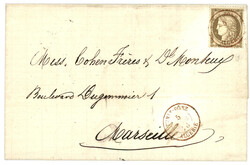 Mess. Cohen Frères & D. Monteux
Boulevard Dugommier 1
Marseille